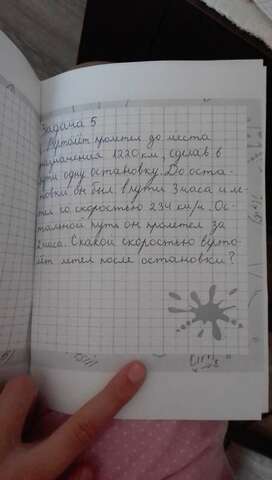 Задача 5
Вертолёт пролетел до места
назначения 1220 км, сделав в
пути одну остановку. До оста-
новки он был в пути 3 часа и ле-
тел со скоростью 234 км/ч. Ос-
тальной путь он пролетел за
2 часа. С какой скоростью верто-
лёт летел после остановки?